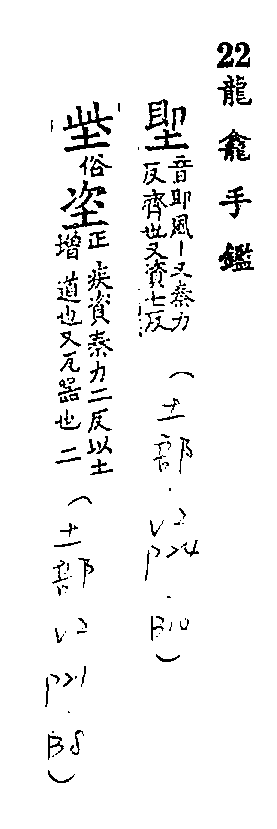 22龍龕手鑑
堲音即風丨又秦力反齊也又資七反（土部．V2 P24．B10）
㘹俗垐正疾資秦力二反以土增道也又瓦器也二（土部 V2 P21．B8）